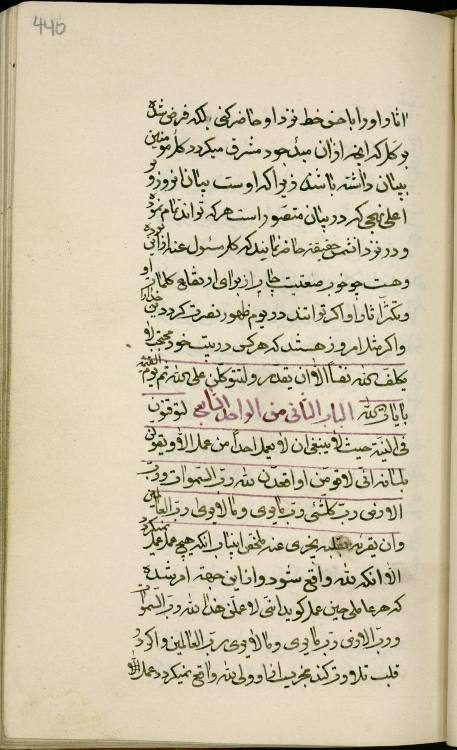 440
آثار او را با حق خط نزد او حاضر کنی بلکه فرض شده
بر کل که آنچه از آن مبدء جود مشرف میگردد کل مؤمنین
به بیان داشته باشند زیرا که اوست بیان آنروز و
اعلی نهجی که در بیان متصور است هر که تواند تمام نموده
و در نزد آن شمس حقیقت حاضر نمایند که کل مسئول عنه از آن
و هست جوهر صنعت از برای ارتفاع کلمات او
و تکثر آثار او اگر توانند در یوم ظهور نصرت کردن
و اگر مثل امروز هستند که هر کس در بیت خود محتجب
یکلف الله نفسا الا وان یقدر ولتتوکلن علی الله ثم یوم القیمة
بآیات الله الباب الثانی من الواحد السابع لتوقنون
فی النیة حیث لا ینبغی ان لا یعمل احدا من عمل الا و یقولن
بلسانه اننی لاقومن او اقعدن لله رب السموات ورب
الارض رب کلشیء رب ما یری وما لا یری رب العالمین
وان یقرئه بقلبه یجزی عنه ملخص این باب آنکه هیچ عمل عمل نمیگردد
الا آنکه لله واقع شود واز این جهت امر شده
که هر عاملی حین عمل گوید اننی لاعملن هذا لله رب السموات
ورب الارض رب ما یری وما لا یری رب العالمین واگر در
قلب تلاوت کند مجزیست او را ولی لله واقع نمیگردد عمل الا